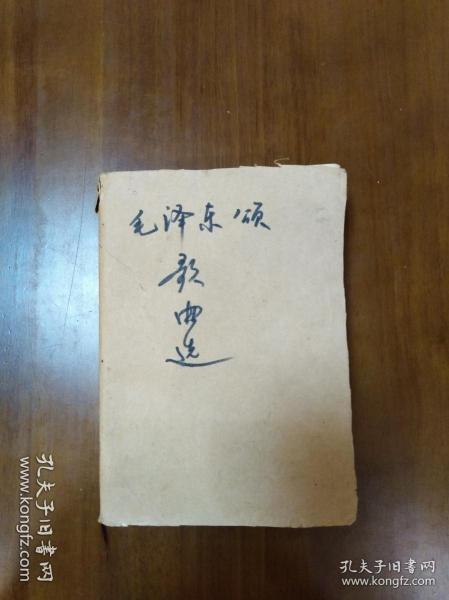 毛泽东颂
歌
曲
选
孔夫子旧书网
孔夫子旧书网
www.kongfz.com